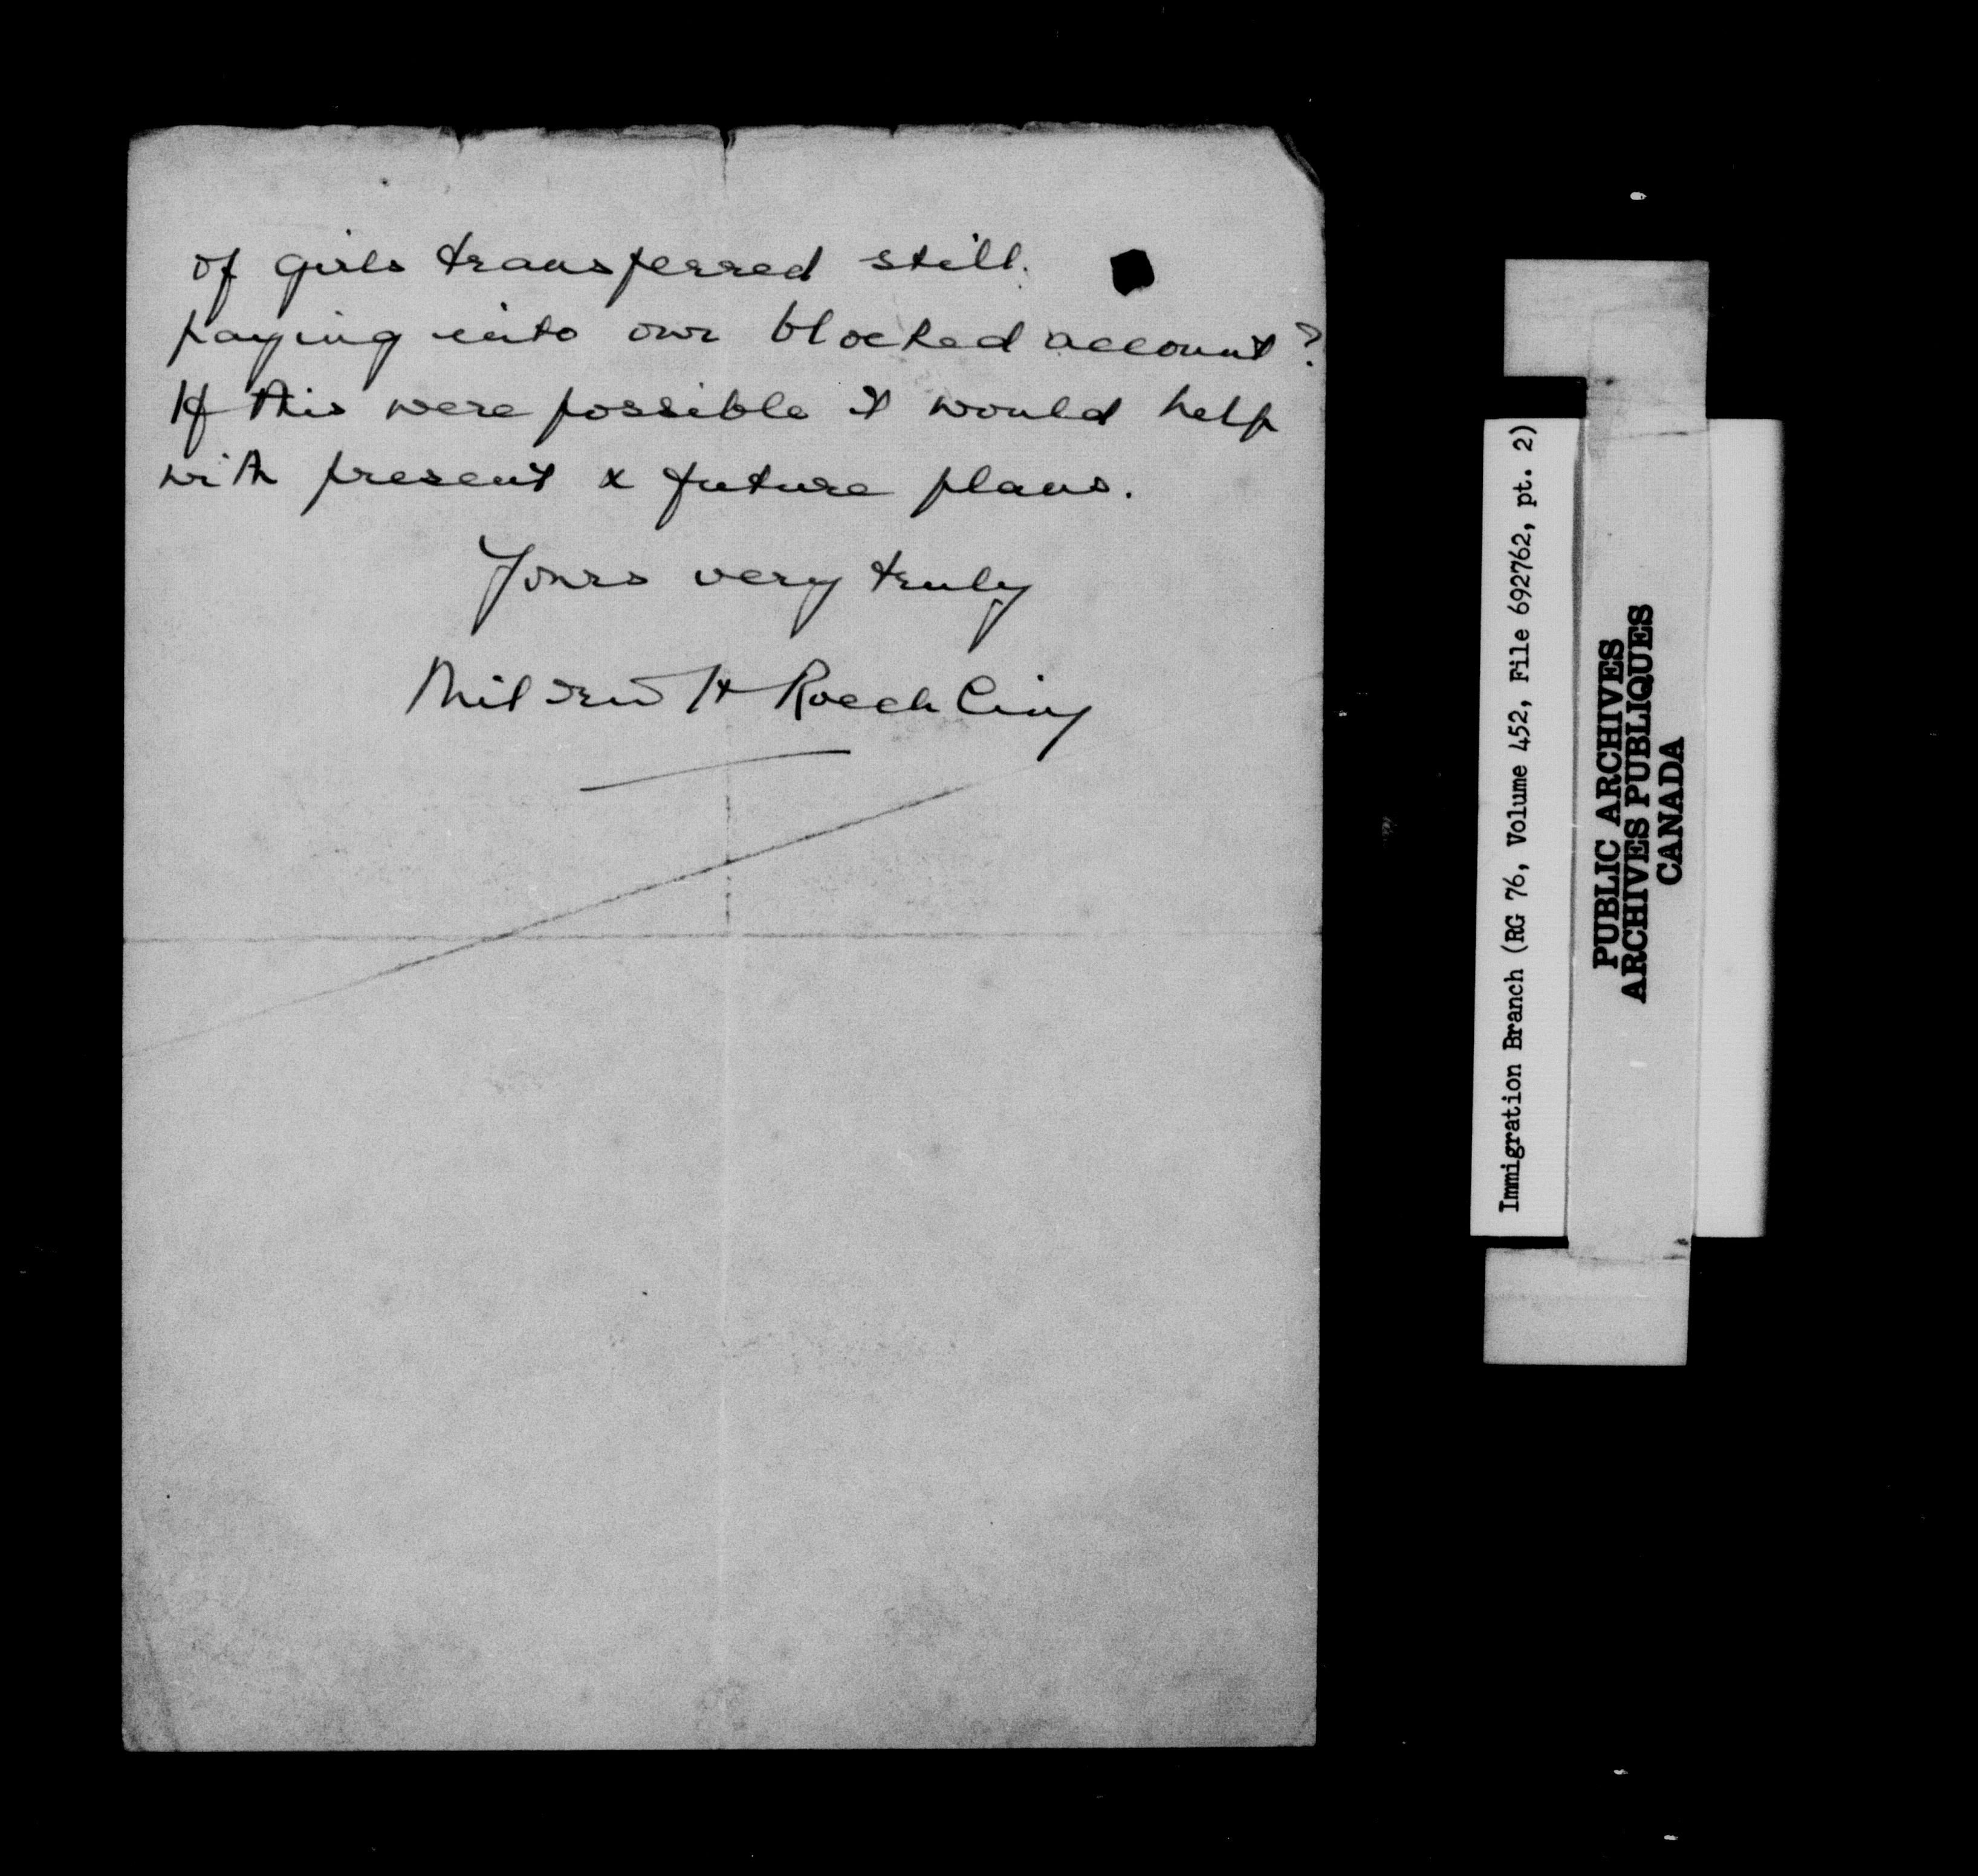 of girls transferred still
paying into our blocked account?
If this were possible it would help
with present & future plans.
Yours very truly
Mildred H Roechling
Immigration Branch (RG 76, Volume 452, File 692762, pt. 2)
PUBLIC ARCHIVES
ARCHIVES PUBLIQUES
CANADA